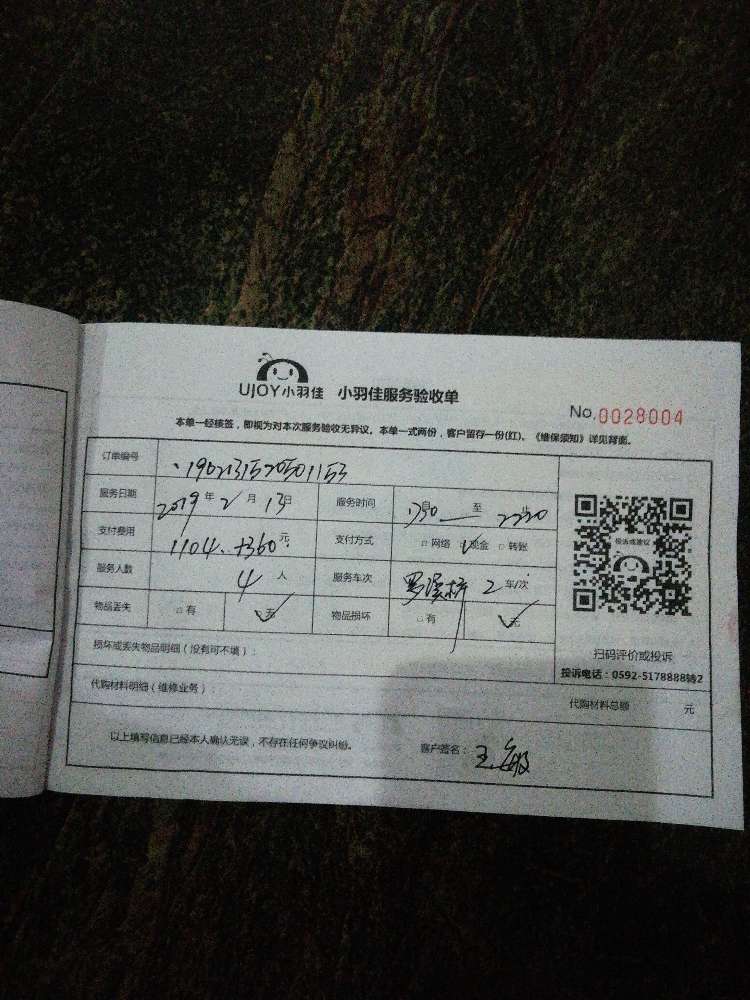 UJOY小羽佳 小羽佳服务验收单
No.0028004
本单一经核签，即视为对本次服务验收无异议。本单一式两份，客户留存一份(红)。《维保须知》详见背面。
订单编号 1902131520501153
服务日期 2019年2月13日 服务时间 1730 至 2220
支付费用 1104.+360元 支付方式 □网络 ☑现金 □转账
服务人数 4人 服务车次 2车/次
物品丢失 □有 ☑无 物品损坏 □有 ☑无
投诉或建议
扫码评价或投诉
投诉电话：0592-5178888转2
损坏或丢失物品明细（没有可不填）：
代购材料明细（维修业务）： 代购材料总额 元
以上填写信息已经本人确认无误，不存在任何争议纠纷。 客户签名：王